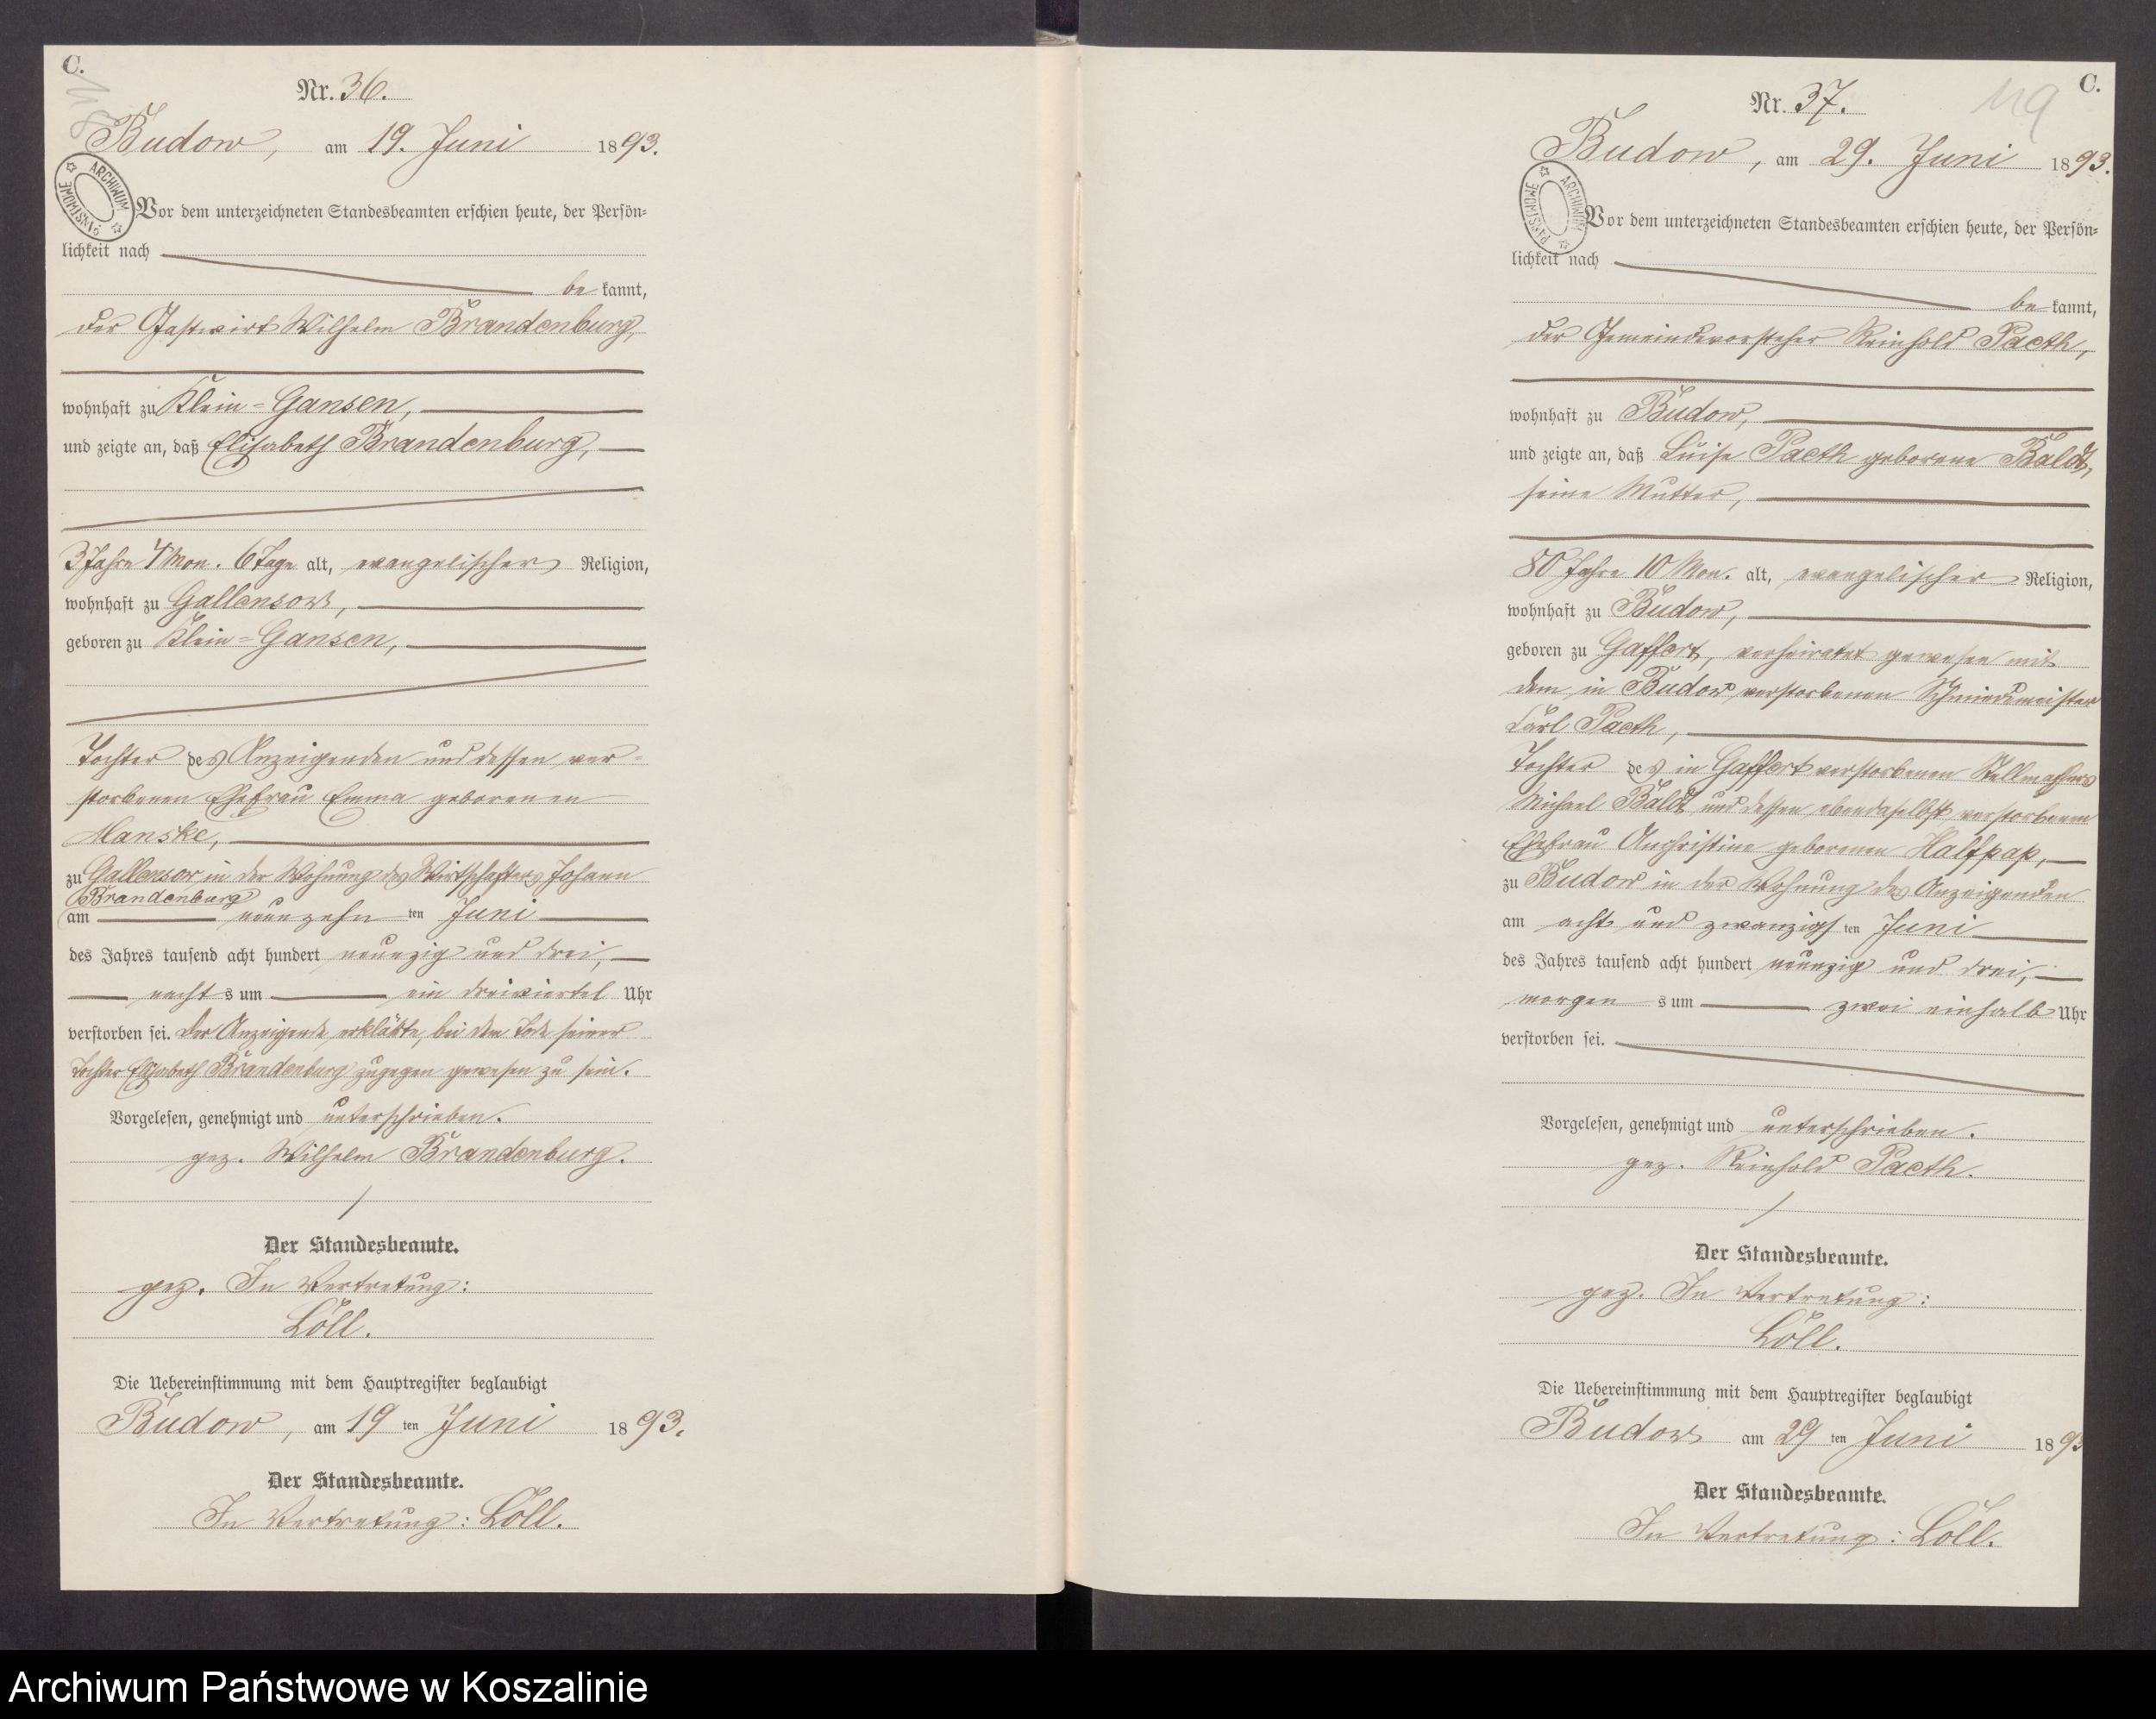 C.
Nr. 36.
Budow, am 19. Juni 1893.
ARCHIWUM PAŃSTWOWE
Vor dem unterzeichneten Standesbeamten erschien heute, der Persön=
lichkeit nach
be kannt,
der Gastwirt Wilhelm Brandenburg,
wohnhaft zu Klein=Gansen,
und zeigte an, daß Elisabeth Brandenburg,
3 Jahre 4 Mon. 6 Tage alt, evangelischer Religion,
wohnhaft zu Gallensow,
geboren zu Klein=Gansen,
Tochter des Anzeigenden und dessen ver=
storbenen Ehefrau Emma geborenen
Manske,
zu Gallensow in der Wohnung des Wirtschafters Johann
Brandenburg
am neunzehn ten Juni
des Jahres tausend acht hundert neunzig und drei,
nacht s um ein dreiviertel Uhr
verstorben sei. Der Anzeigende erklärte, bei dem Tode seiner
Tochter Elisabeth Brandenburg zugegen gewesen zu sein.
Vorgelesen, genehmigt und unterschrieben.
gez. Wilhelm Brandenburg.
Der Standesbeamte.
gez. In Vertretung:
Löll.
Die Uebereinstimmung mit dem Hauptregister beglaubigt
Budow, am 19 ten Juni 1893.
Der Standesbeamte.
In Vertretung: Löll.
C.
119
Nr. 37.
Budow, am 29. Juni 1893.
ARCHIWUM PAŃSTWOWE
Vor dem unterzeichneten Standesbeamten erschien heute, der Persön=
lichkeit nach
be kannt,
der Gemeindevorsteher Reinhold Paeth,
wohnhaft zu Budow,
und zeigte an, daß Luise Paeth geborene Baldt,
seine Mutter,
80 Jahre 10 Mon. alt, evangelischer Religion,
wohnhaft zu Budow,
geboren zu Gaffert, verheiratet gewesen mit
dem in Budow verstorbenen Schmiedemeister
Carl Paeth,
Tochter des in Gaffert verstorbenen Stellmachers
Michael Baldt und dessen ebendaselbst verstorbenen
Ehefrau Anchristine geborenen Halfpap,
zu Budow in der Wohnung des Anzeigenden
am acht und zwanzigs ten Juni
des Jahres tausend acht hundert neunzig und drei,
morgen s um zwei einhalb Uhr
verstorben sei.
Vorgelesen, genehmigt und unterschrieben.
gez. Reinhold Paeth.
Der Standesbeamte.
gez. In Vertretung:
Löll.
Die Uebereinstimmung mit dem Hauptregister beglaubigt
Budow am 29 ten Juni 1893
Der Standesbeamte.
In Vertretung: Löll.
Archiwum Państwowe w Koszalinie